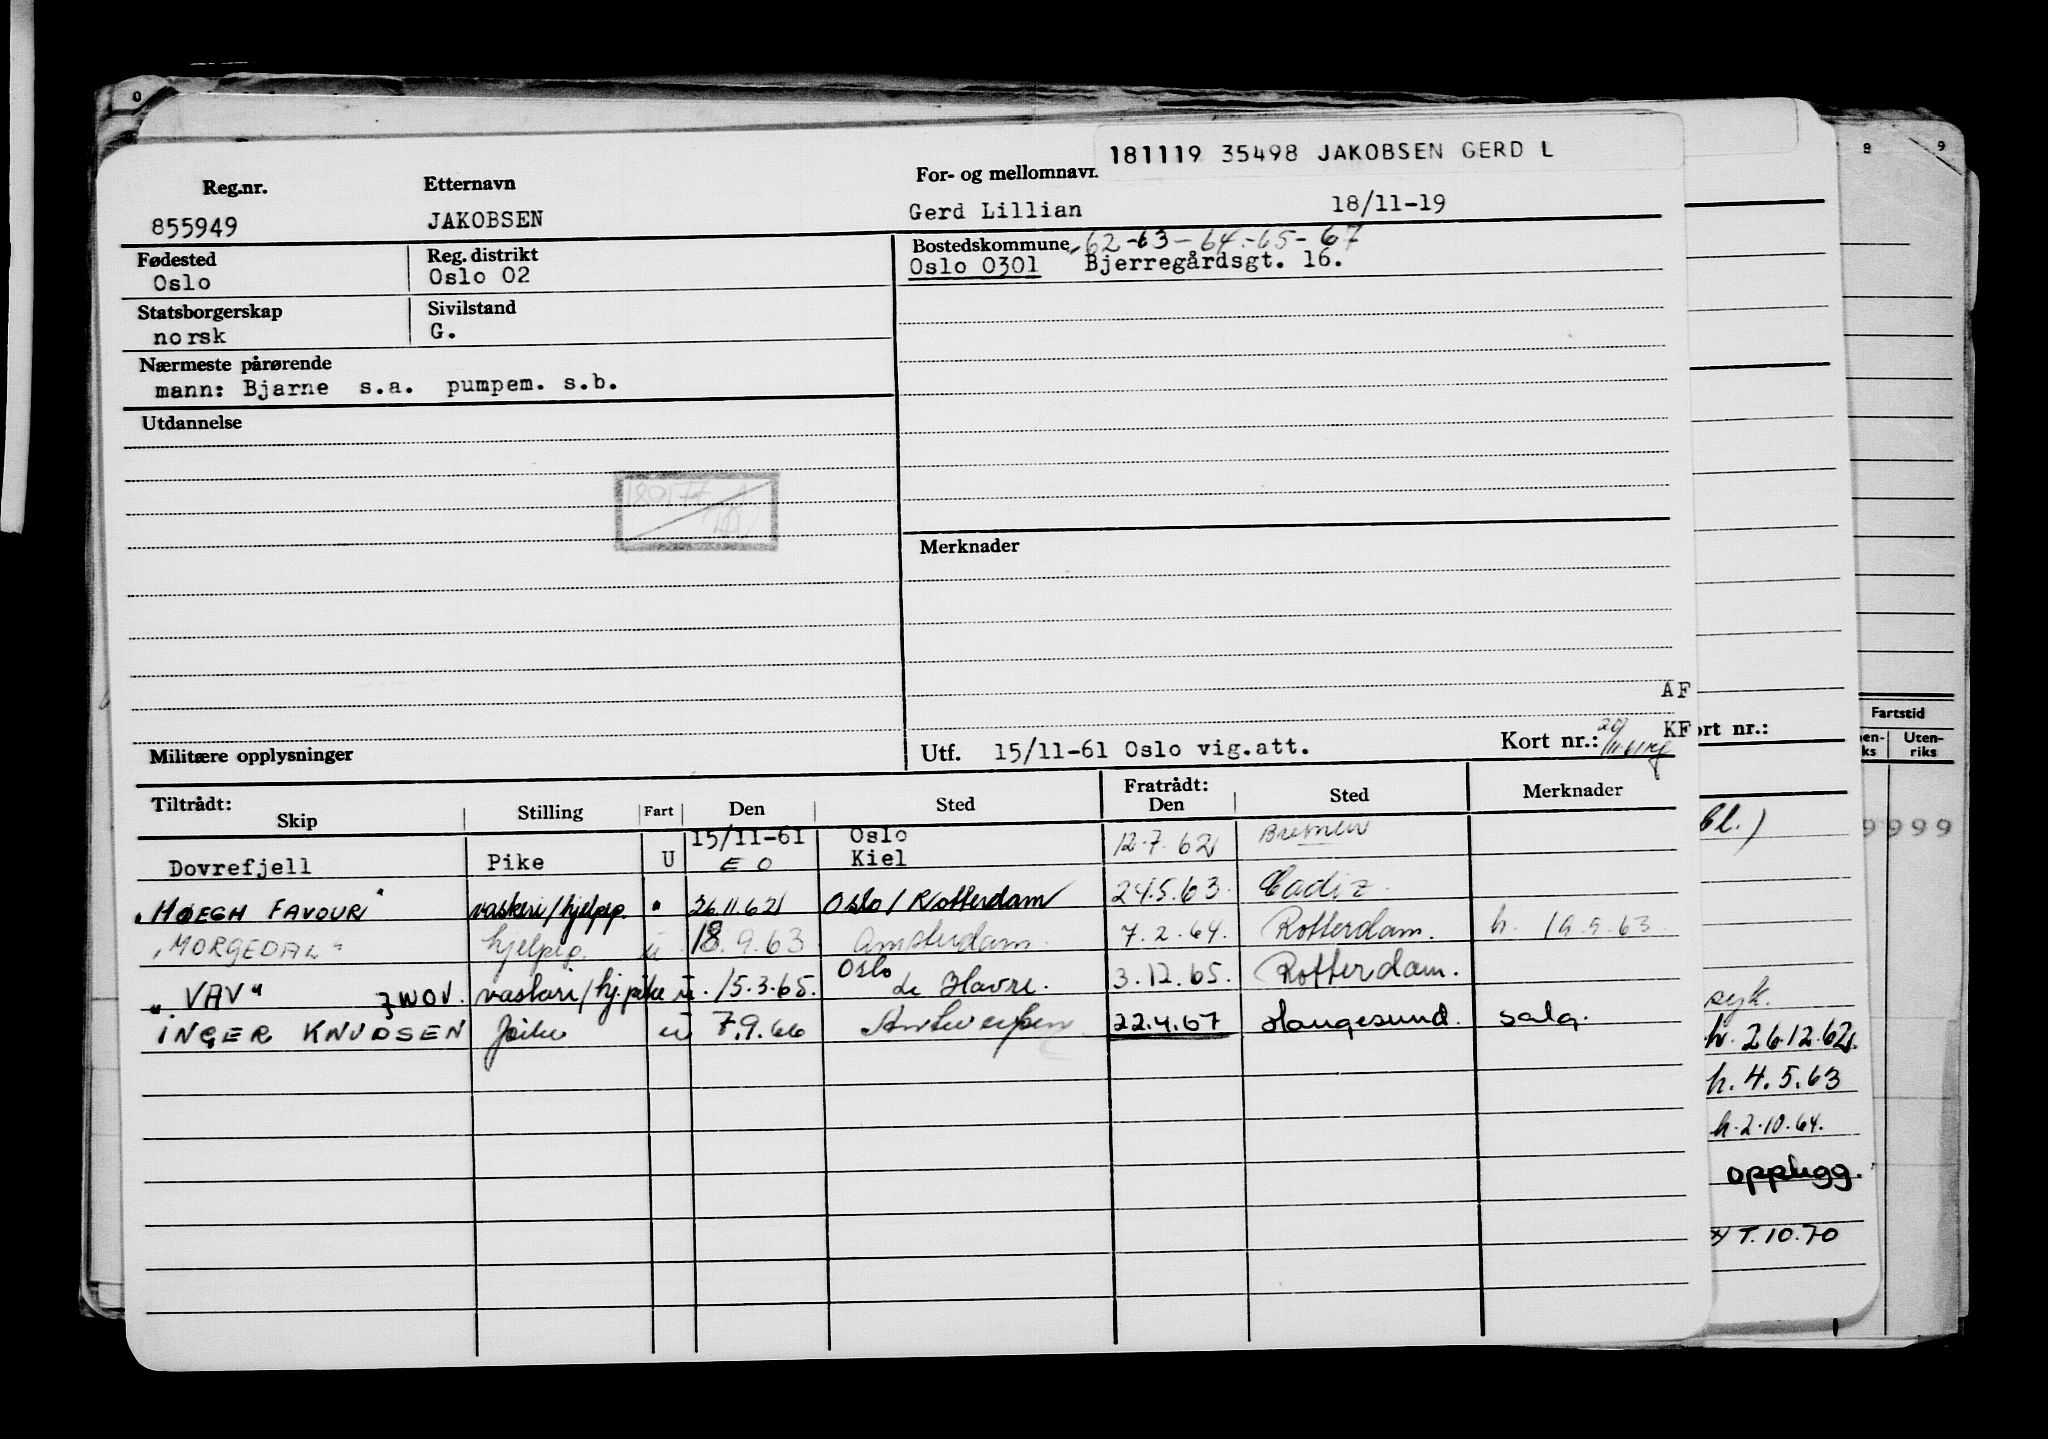 181119 35498 JAKOBSEN GERD L
Reg.nr. Etternavn For- og mellomnavn
855949 JAKOBSEN Gerd Lillian 18/11-19
Fødested Reg. distrikt Bostedskommune 62-63-64-65-67
Oslo Oslo 02 Oslo 0301 Bjerregårdsgt. 16.
Statsborgerskap Sivilstand
norsk G.
Nærmeste pårørende
mann: Bjarne s.a. pumpem. s.b.
Utdannelse
180177
Merknader
AF
KF
Militære opplysninger Utf. 15/11-61 Oslo vig.att. Kort nr.: ort nr.:
Fartstid
Uten-
riks
Tiltrådt: Fratrådt:
Skip Stilling Fart Den Sted Den Sted Merknader
15/11-61 Oslo
Dovrefjell Pike U E O Kiel 12.7.62 Bremen
"HØEGH FAVOUR" vaskeri/hjelpep. " 26.11.62 Oslo/Rotterdam 24.5.63. Cadiz.
"MORGEDAL" hjelpep. u 18.9.63 Amsterdam. 7.2.64. Rotterdam. h. 19.9.63.
Oslo
"VAV" ZWOV. vaskeri/hj.pike u. 15.3.65. Le Havre. 3.12.65. Rotterdam.
INGER KNUDSEN Pike u 7.9.66 Antwerpen 22.4.67 Haugesund. salg.
9999
sejk.
h. 26.12.62.
h. 4.5.63
h. 2.10.64.
opphugg.
T.10.70